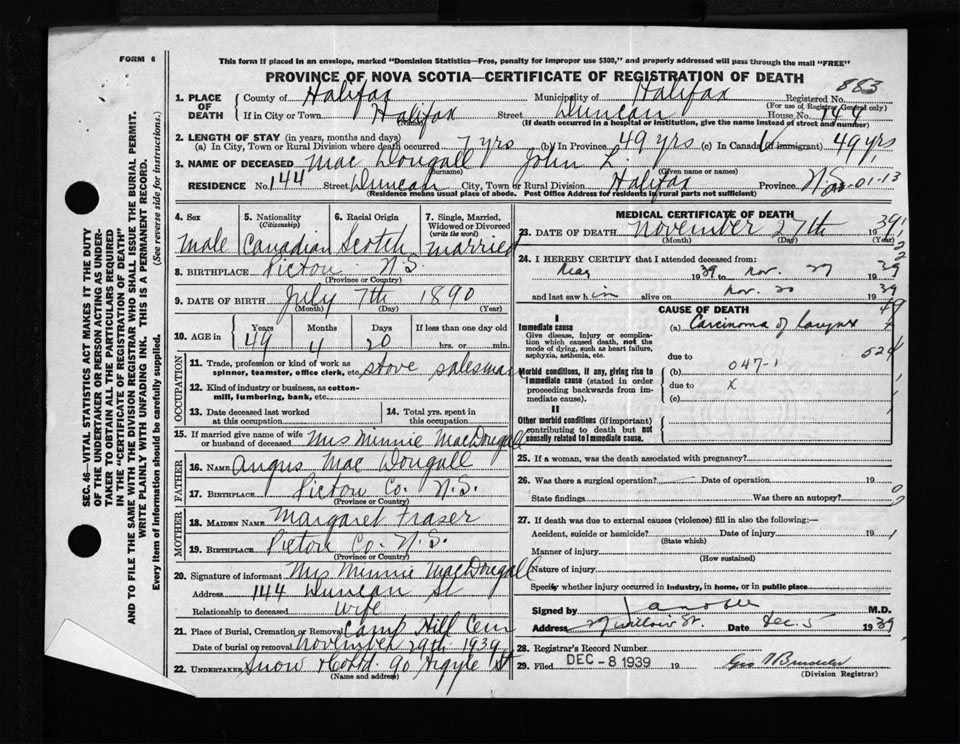 FORM 6
This form if placed in an envelope, marked "Dominion Statistics—Free, penalty for improper use $300," and properly addressed will pass through the mail "FREE"
PROVINCE OF NOVA SCOTIA—CERTIFICATE OF REGISTRATION OF DEATH
883
1. PLACE OF DEATH County of Halifax Municipality of Halifax Registered No.
(For use of Registrar General only)
If in City or Town Halifax Street Duncan House No. 144
(Name)
(If death occurred in a hospital or institution, give the name instead of street and number)
2. LENGTH OF STAY (in years, months and days)
(a) In City, Town or Rural Division where death occurred 7 yrs (b) In Province 49 yrs (c) In Canada (if immigrant) 49 yrs
3. NAME OF DECEASED Mac Dougall John L.
(Surname) (Given name or names)
RESIDENCE No. 144 Street Duncan City, Town or Rural Division Halifax Province N.S. 01-13
(Residence means usual place of abode. Post Office Address for Residents in rural parts not sufficient)
4. Sex
male
5. Nationality
(Citizenship)
Canadian
6. Racial Origin
Scotch
7. Single, Married, Widowed or Divorced
(write the word)
married
8. BIRTHPLACE Pictou N.S.
(Province or Country)
9. DATE OF BIRTH July 7th 1890
(Month) (Day) (Year)
10. AGE in Years Months Days If less than one day old
49 4 20 hrs. or min.
OCCUPATION
11. Trade, profession or kind of work as spinner, teamster, office clerk, etc. stove salesman
12. Kind of industry or business, as cotton-mill, lumbering, bank, etc.
13. Date deceased last worked at this occupation
14. Total yrs. spent in this occupation
15. If married give name of wife or husband of deceased Mrs Minnie MacDougall
FATHER
16. NAME Angus Mac Dougall
17. BIRTHPLACE Pictou Co. N.S.
(Province or Country)
MOTHER
18. MAIDEN NAME Margaret Fraser
19. BIRTHPLACE Pictou Co. N.S.
(Province or Country)
20. Signature of informant Mrs Minnie MacDougall
Address 144 Duncan St
Relationship to deceased wife
21. Place of Burial, Cremation or Removal Camp Hill Cem
Date of burial or removal November 29th 1939
22. UNDERTAKER Snow & Co Ltd. 90 Argyle St
(Name and address)
MEDICAL CERTIFICATE OF DEATH
23. DATE OF DEATH November 27th 1939
(Month) (Day) (Year)
24. I HEREBY CERTIFY that I attended deceased from:
May 1939 to Nov. 27 1939
and last saw him alive on Nov. 20 1939
CAUSE OF DEATH
I
Immediate cause
Give disease, injury or complication which caused death, not the mode of dying, such as heart failure, asphyxia, asthenia, etc.
(a) Carcinoma of larynx
due to
Morbid conditions, if any, giving rise to immediate cause (stated in order proceeding backwards from immediate cause).
(b) 047-1
due to X
(c)
II
Other morbid conditions (if important) contributing to death but not causally related to immediate cause.
25. If a woman, was the death associated with pregnancy?
26. Was there a surgical operation? Date of operation 19
State findings Was there an autopsy?
27. If death was due to external causes (violence) fill in also the following:—
Accident, suicide or homicide? Date of injury 19
(State which)
Manner of injury
(How sustained)
Nature of injury
Specify whether injury occurred in industry, in home, or in public place
Signed by M.D.
Address Willow St. Date Dec. 5 1939
28. Registrar's Record Number
29. Filed DEC - 8 1939 19
(Division Registrar)
SEC. 46—VITAL STATISTICS ACT MAKES IT THE DUTY
OF THE UNDERTAKER OR PERSON ACTING AS UNDER-
TAKER TO OBTAIN ALL THE PARTICULARS REQUIRED
IN THE "CERTIFICATE OF REGISTRATION OF DEATH"
AND TO FILE THE SAME WITH THE DIVISION REGISTRAR WHO SHALL ISSUE THE BURIAL PERMIT.
WRITE PLAINLY WITH UNFADING INK. THIS IS A PERMANENT RECORD.
Every item of Information should be carefully supplied. (See reverse side for instructions.)